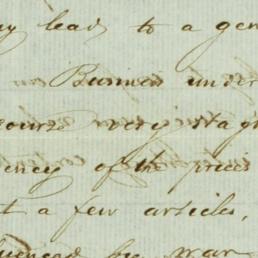 ay lead to a gen
Business under
course very stag
ency of the prices
t a few articles,
uenced by war